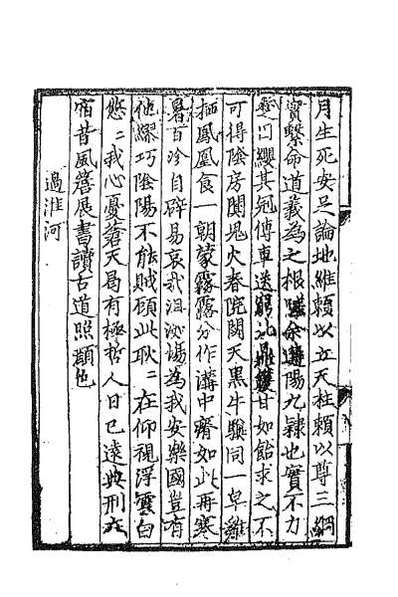 月生死安足論地維賴以立天柱賴以尊三綱
實繫命道義為之根嗟余遘陽九隸也實不力
楚囚纓其冠傳車送窮北鼎鑊甘如飴求之不
可得陰房闃鬼火春院閟天黑牛驥同一皁雞
栖鳳凰食一朝蒙霧露分作溝中瘠如此再寒
暑百沴自辟易哀哉沮洳場為我安樂國豈有
他繆巧陰陽不能賊顧此耿〻在仰視浮雲白
悠〻我心憂蒼天曷有極哲人日已遠典刑在
宿昔風簷展書讀古道照顏色
過淮河